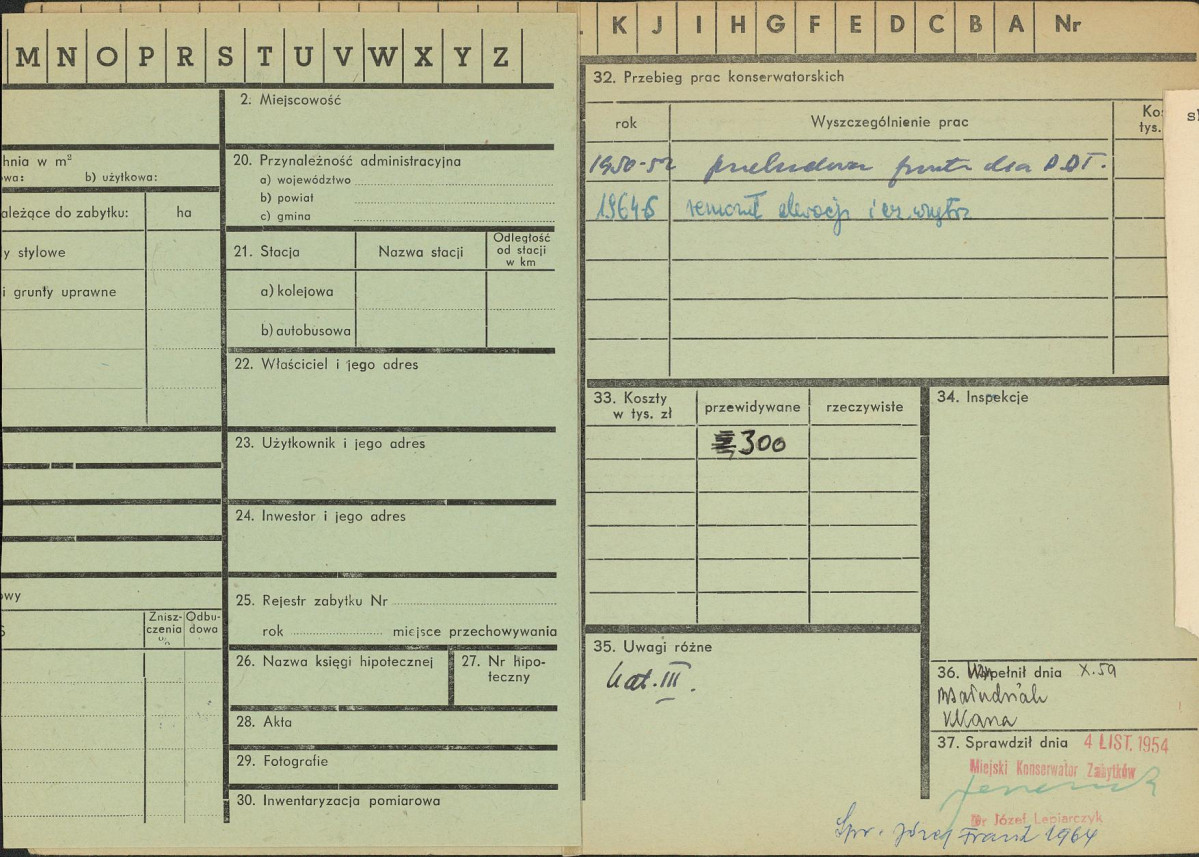 M N O P R S T U V W X Y Z
K J I H G F E D C B A Nr
hnia w m²
owa: b) użytkowa:
ależące do zabytku: ha
y stylowe
i grunty uprawne
owy
Znisz-
czenia
Odbu-
dowa
2. Miejscowość
20. Przynależność administracyjna
a) województwo
b) powiat
c) gmina
21. Stacja Nazwa stacji Odległość
od stacji
w km
a) kolejowa
b) autobusowa
22. Właściciel i jego adres
23. Użytkownik i jego adres
24. Inwestor i jego adres
25. Rejestr zabytku Nr
rok miejsce przechowywania
26. Nazwa księgi hipotecznej
27. Nr hipo-
teczny
28. Akta
29. Fotografie
30. Inwentaryzacja pomiarowa
32. Przebieg prac konserwatorskich
rok Wyszczególnienie prac Kos
tys.
1950-52 przebudowa dla P.D.T.
1964-5 remont elewacji i wewnątrz
33. Koszty
w tys. zł
przewidywane rzeczywiste
300
34. Inspekcje
35. Uwagi różne
kat. III.
36. Wypełnił dnia X.59
37. Sprawdził dnia 4 LIST. 1954
Miejski Konserwator Zabytków
Dr Józef Lepiarczyk
Spr. Józef Frazik 1964